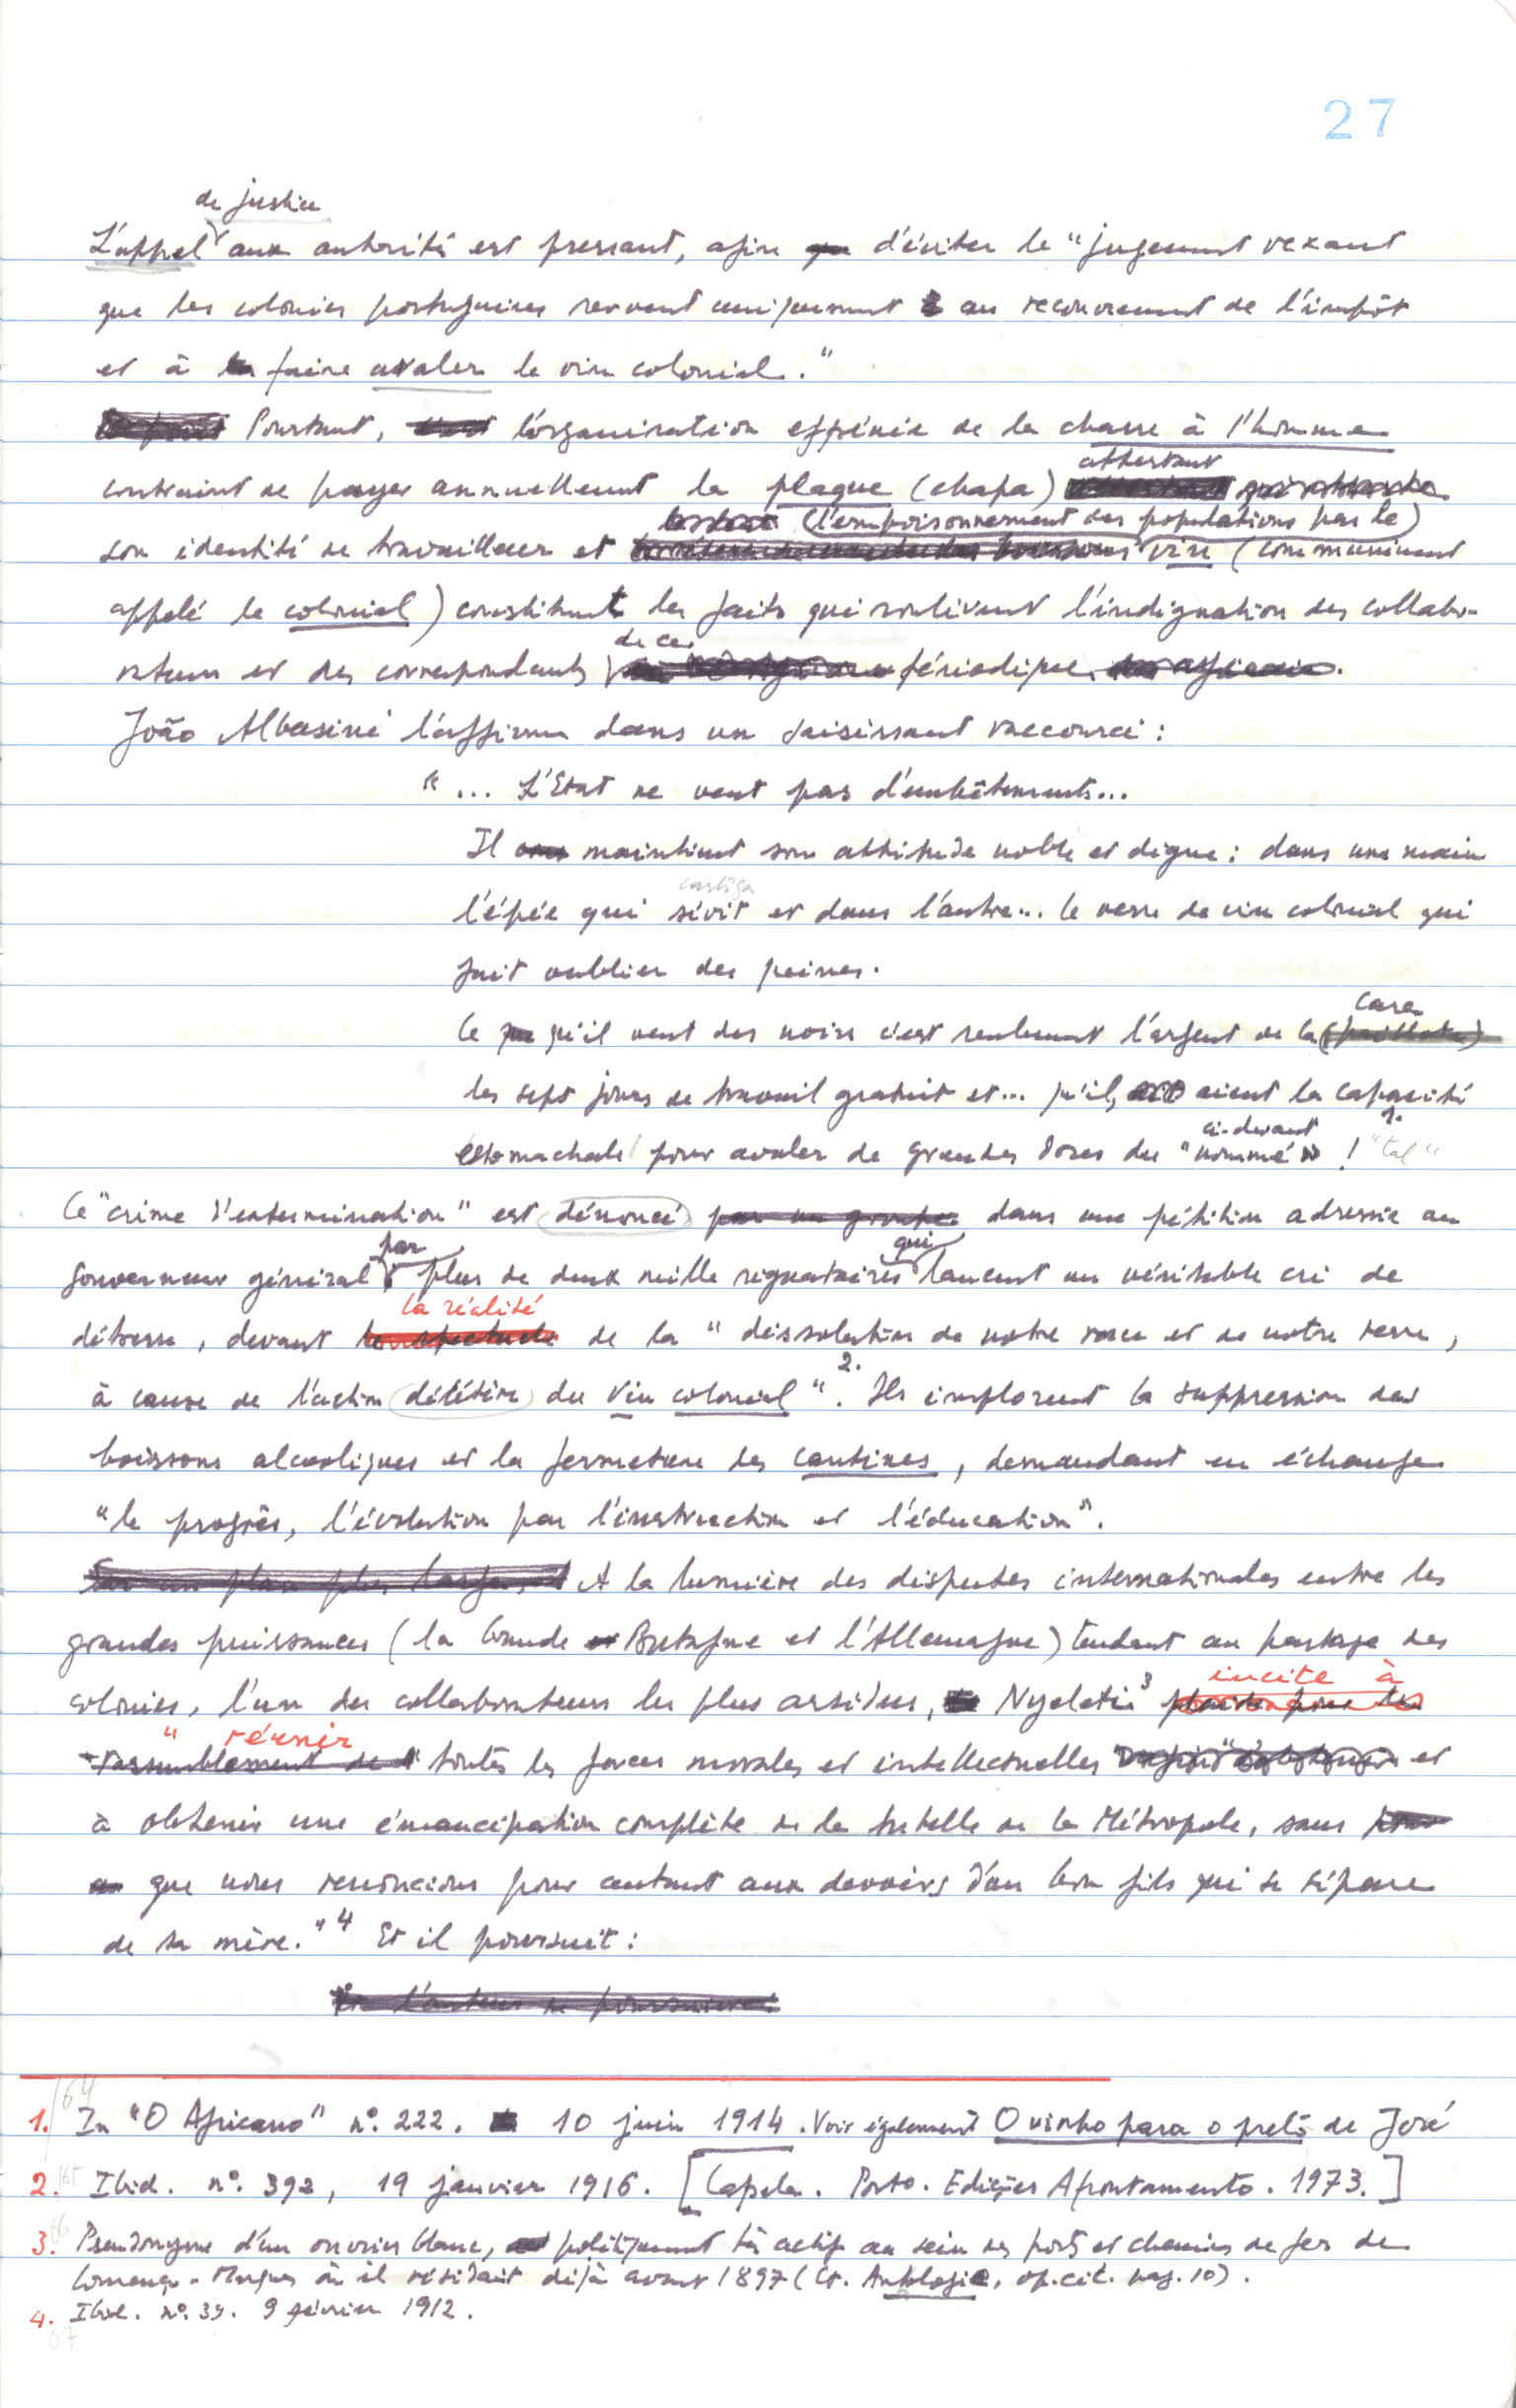 27
de justice
L'appel aux autorités est pressant, afin d'éviter le "jugement vexant
que les colonies portugaises servent uniquement au recouvrement de l'impôt
et à faire avaler le vin colonial."
Pourtant, l'organisation effrénée de la chasse à l'homme
attestant
contraint de payer annuellement la plaque (chapa)
(l'empoisonnement des populations par le)
son identité de travailleur et vin (communément
appelé le colonial) constituent les faits qui soulèvent l'indignation des collabo-
de ce
rateurs et des correspondants périodique.
João Albasini l'affirme dans un saisissant raccourci :
"... L'Etat ne veut pas d'embêtements...
Il maintient son attitude noble et digne : dans une main
castiga
l'épée qui sévit et dans l'autre... le verre de vin colonial qui
fait oublier des peines.
case
Ce qu'il veut des noirs c'est seulement l'argent de la (paillote)
les sept jours de travail gratuit et... qu'ils aient la capacité
ci-devant 1.
estomachale pour avaler de grandes doses du "nommé" ! "tal"
Ce "crime d'extermination" est dénoncé par un groupe dans une pétition adressée au
par qui
Gouverneur général plus de deux mille signataires lancent un véritable cri de
la réalité
détresse, devant le spectacle de la "dissolution de notre race et de notre terre,
2.
à cause de l'action délétère du vin colonial". Ils implorent la suppression des
boissons alcooliques et la fermeture des cantines, demandant en échange
"le progrès, l'évolution par l'instruction et l'éducation".
Sur un plan plus large, A la lumière des disputes internationales entre les
grandes puissances (la Grande Bretagne et l'Allemagne) tendant au partage des
incite à
colonies, l'un des collaborateurs les plus assidus, Nyeleti 3 plaide pour le
" réunir
rassemblement de toutes les forces morales et intellectuelles et
à obtenir une émancipation complète de la tutelle de la Métropole, sans
que nous renoncions pour autant aux devoirs d'un bon fils qui se sépare
de sa mère." 4 Et il poursuit :
l'auteur de poursuivre :
64
1. In "O Africano" nº. 222. 10 juin 1914. Voir également O vinho para o preto de José
2. Ibid. nº. 392, 19 janvier 1916. [Capela. Porto. Edições Afrontamento. 1973.]
3. Pseudonyme d'un ouvrier blanc, politiquement très actif au sein des ports et chemins de fer de
Lourenço-Marques où il résidait déjà avant 1897 (Cf. Antologie, op. cit. pag. 10).
4. Ibid. nº. 39. 9 février 1912.
67